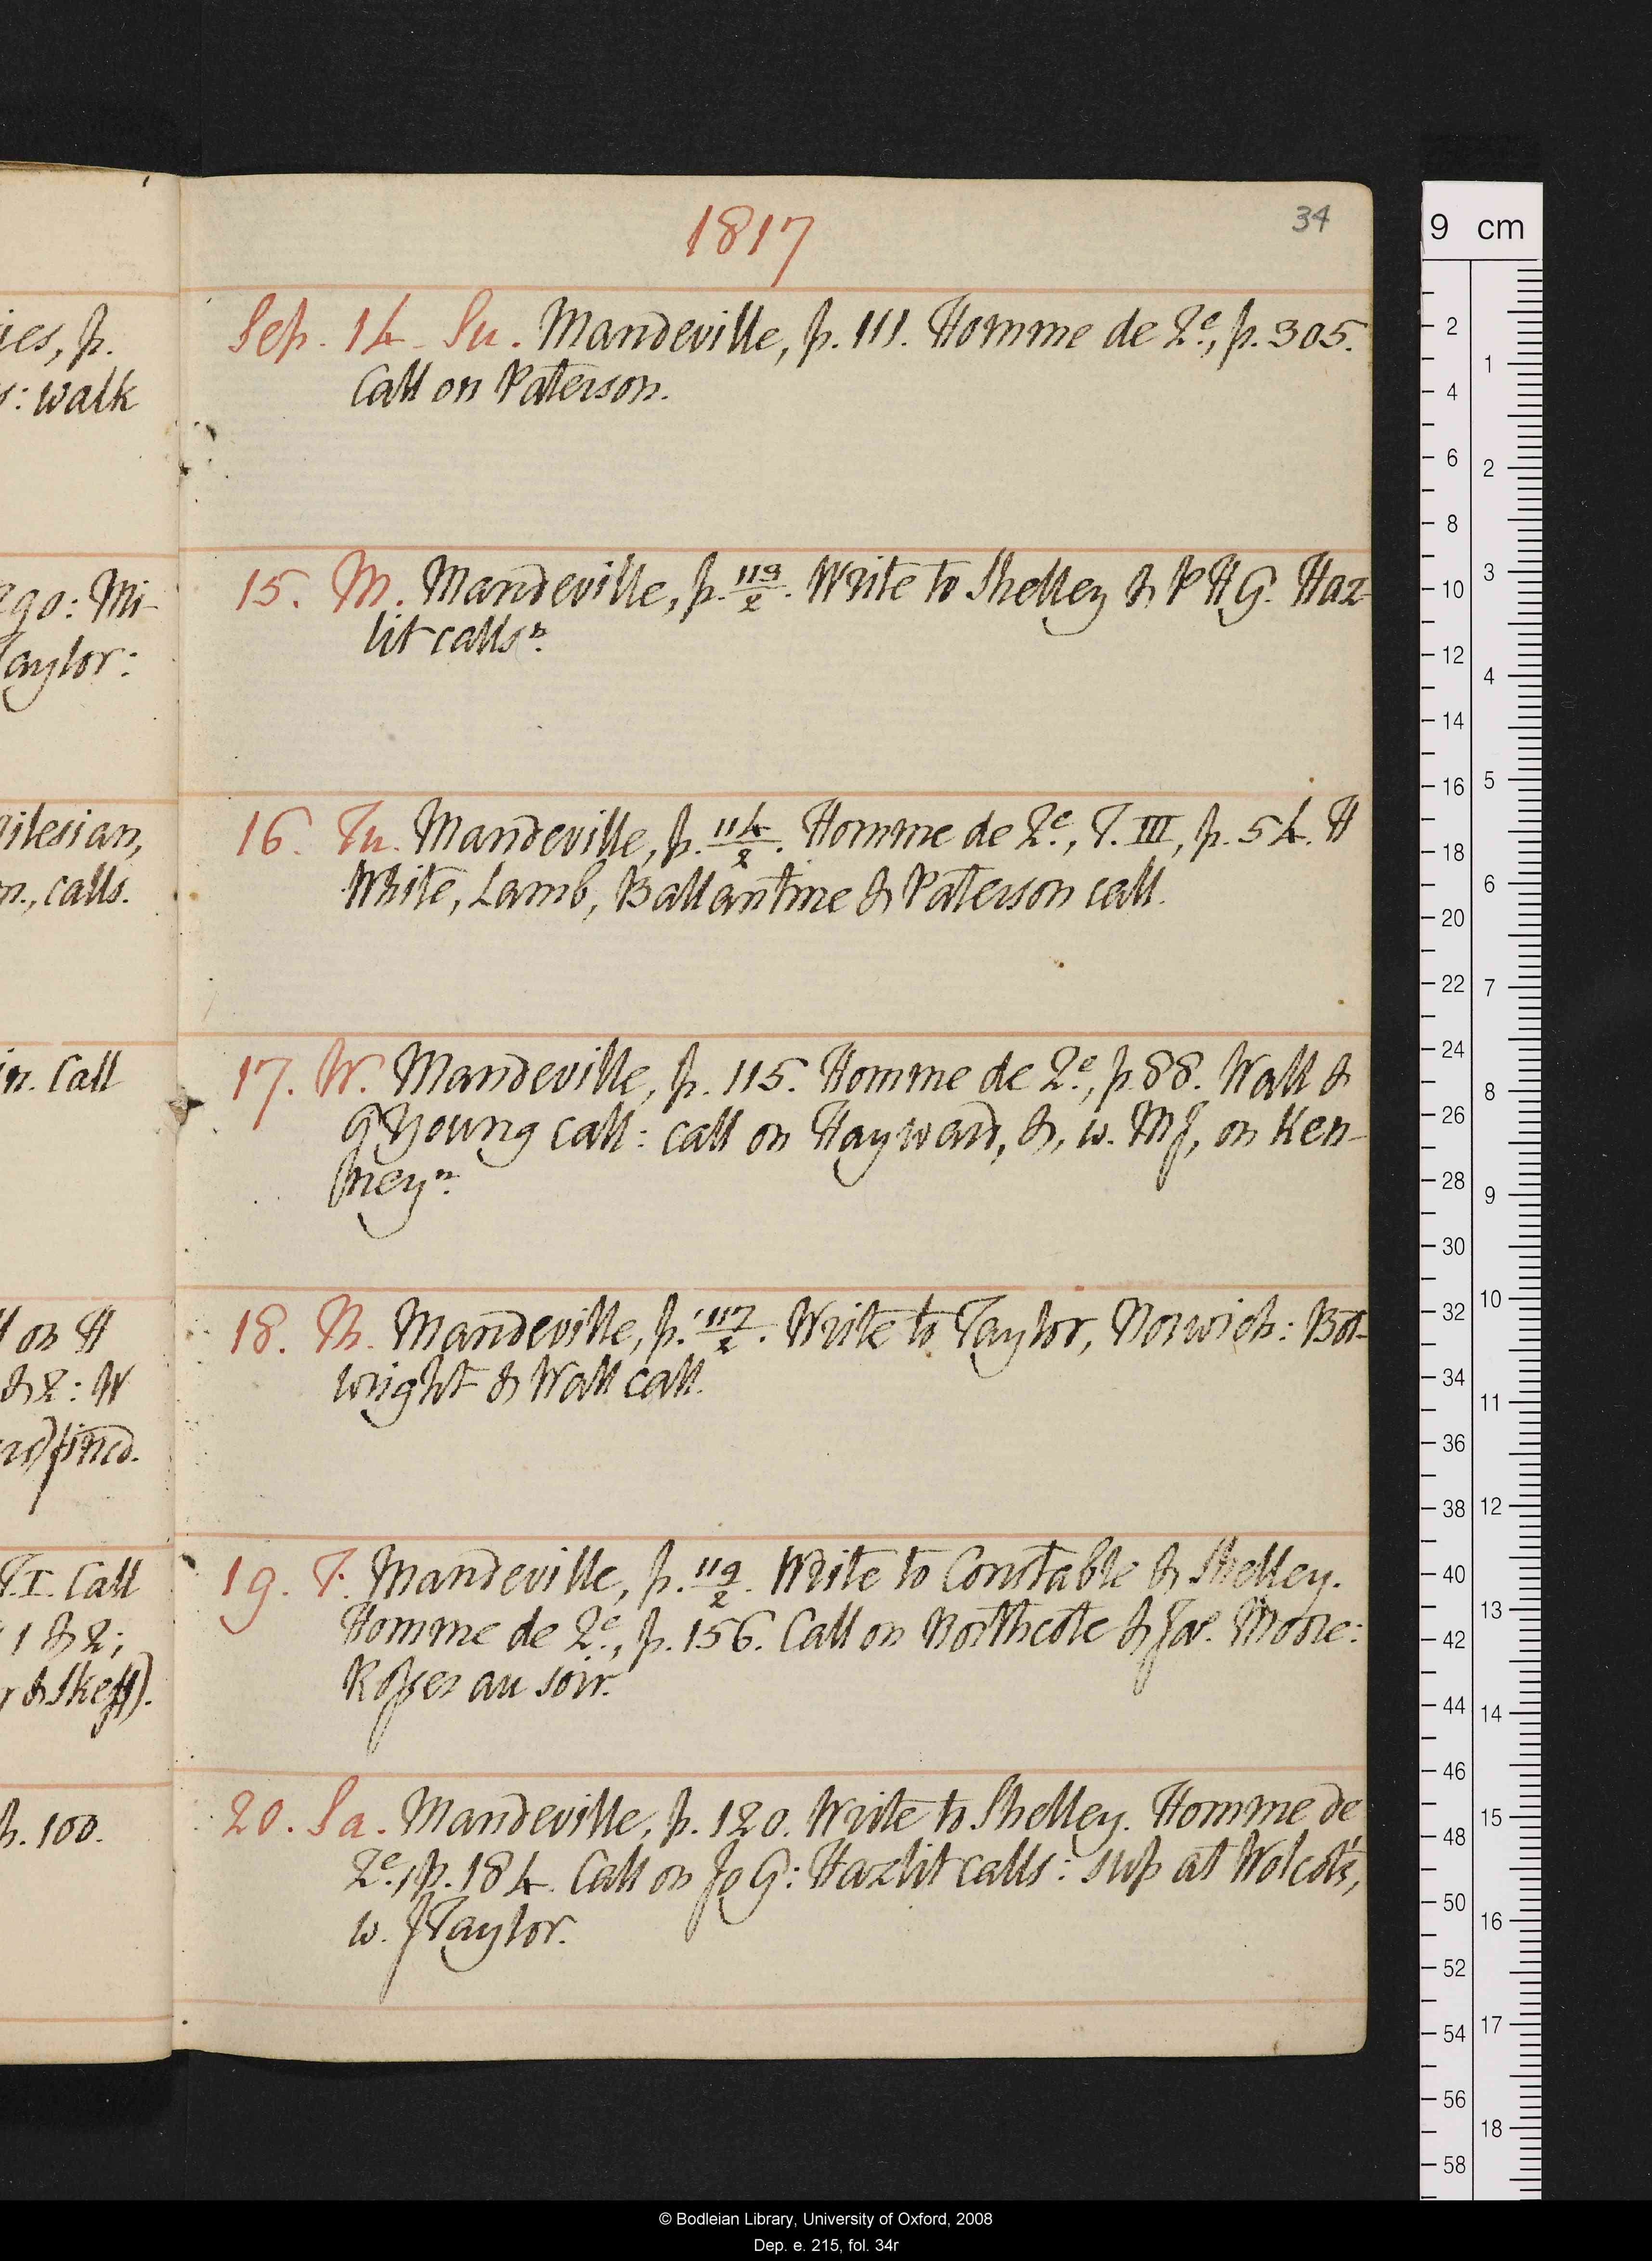 ies, p.
: walk
go: Mi-
Taylor:
ilesian,
n., calls.
in. Call
on H
& 2: W
T. I. Call
1 & 2;
r & Skeff).
p. 100.
1817
34
Sep. 14. Su. Mandeville, p. 111. Homme de Qe., p. 305.
Call on Paterson.
15. M. Mandeville, p. 113/2. Write to Shelley & P H G. Haz-
lit calls n.
16. Tu. Mandeville, p. 114/2. Homme de Qe., T. III, p. 54. H
White, Lamb, Ballantine & Paterson call.
17. W. Mandeville, p. 115. Homme de Qe., p. 88. Wall &
G Young call: call on Hayward, &, w. MJ, on Ken-
ney n.
18. Th. Mandeville, p. 117/2. Write to Taylor, Norwich: Bot-
wright & Wall call.
19. F. Mandeville, p. 119/2. Write to Constable & Shelley.
Homme de Qe., p. 156. Call on Northcote & Jas. Moore:
Rosser au soir.
20. Sa. Mandeville, p. 120. Write to Shelley. Homme de
Qe., p. 184. Call on Jo G: Hazlit calls: sup at Wolcot's,
w. J Taylor.
9 cm
2
1
4
6
2
8
10
3
12
4
14
16
5
18
6
20
22
7
24
8
26
28
9
30
32
10
34
11
36
38
12
40
13
42
44
14
46
15
48
50
16
52
54
17
56
18
58
© Bodleian Library, University of Oxford, 2008
Dep. e. 215, fol. 34r